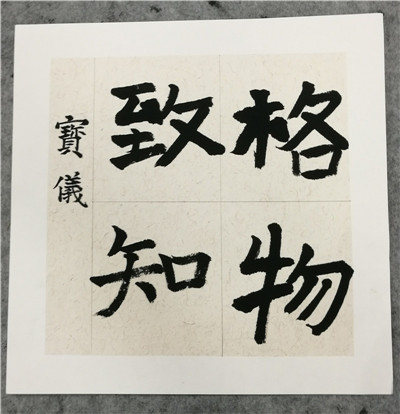 格物
致知
寶儀